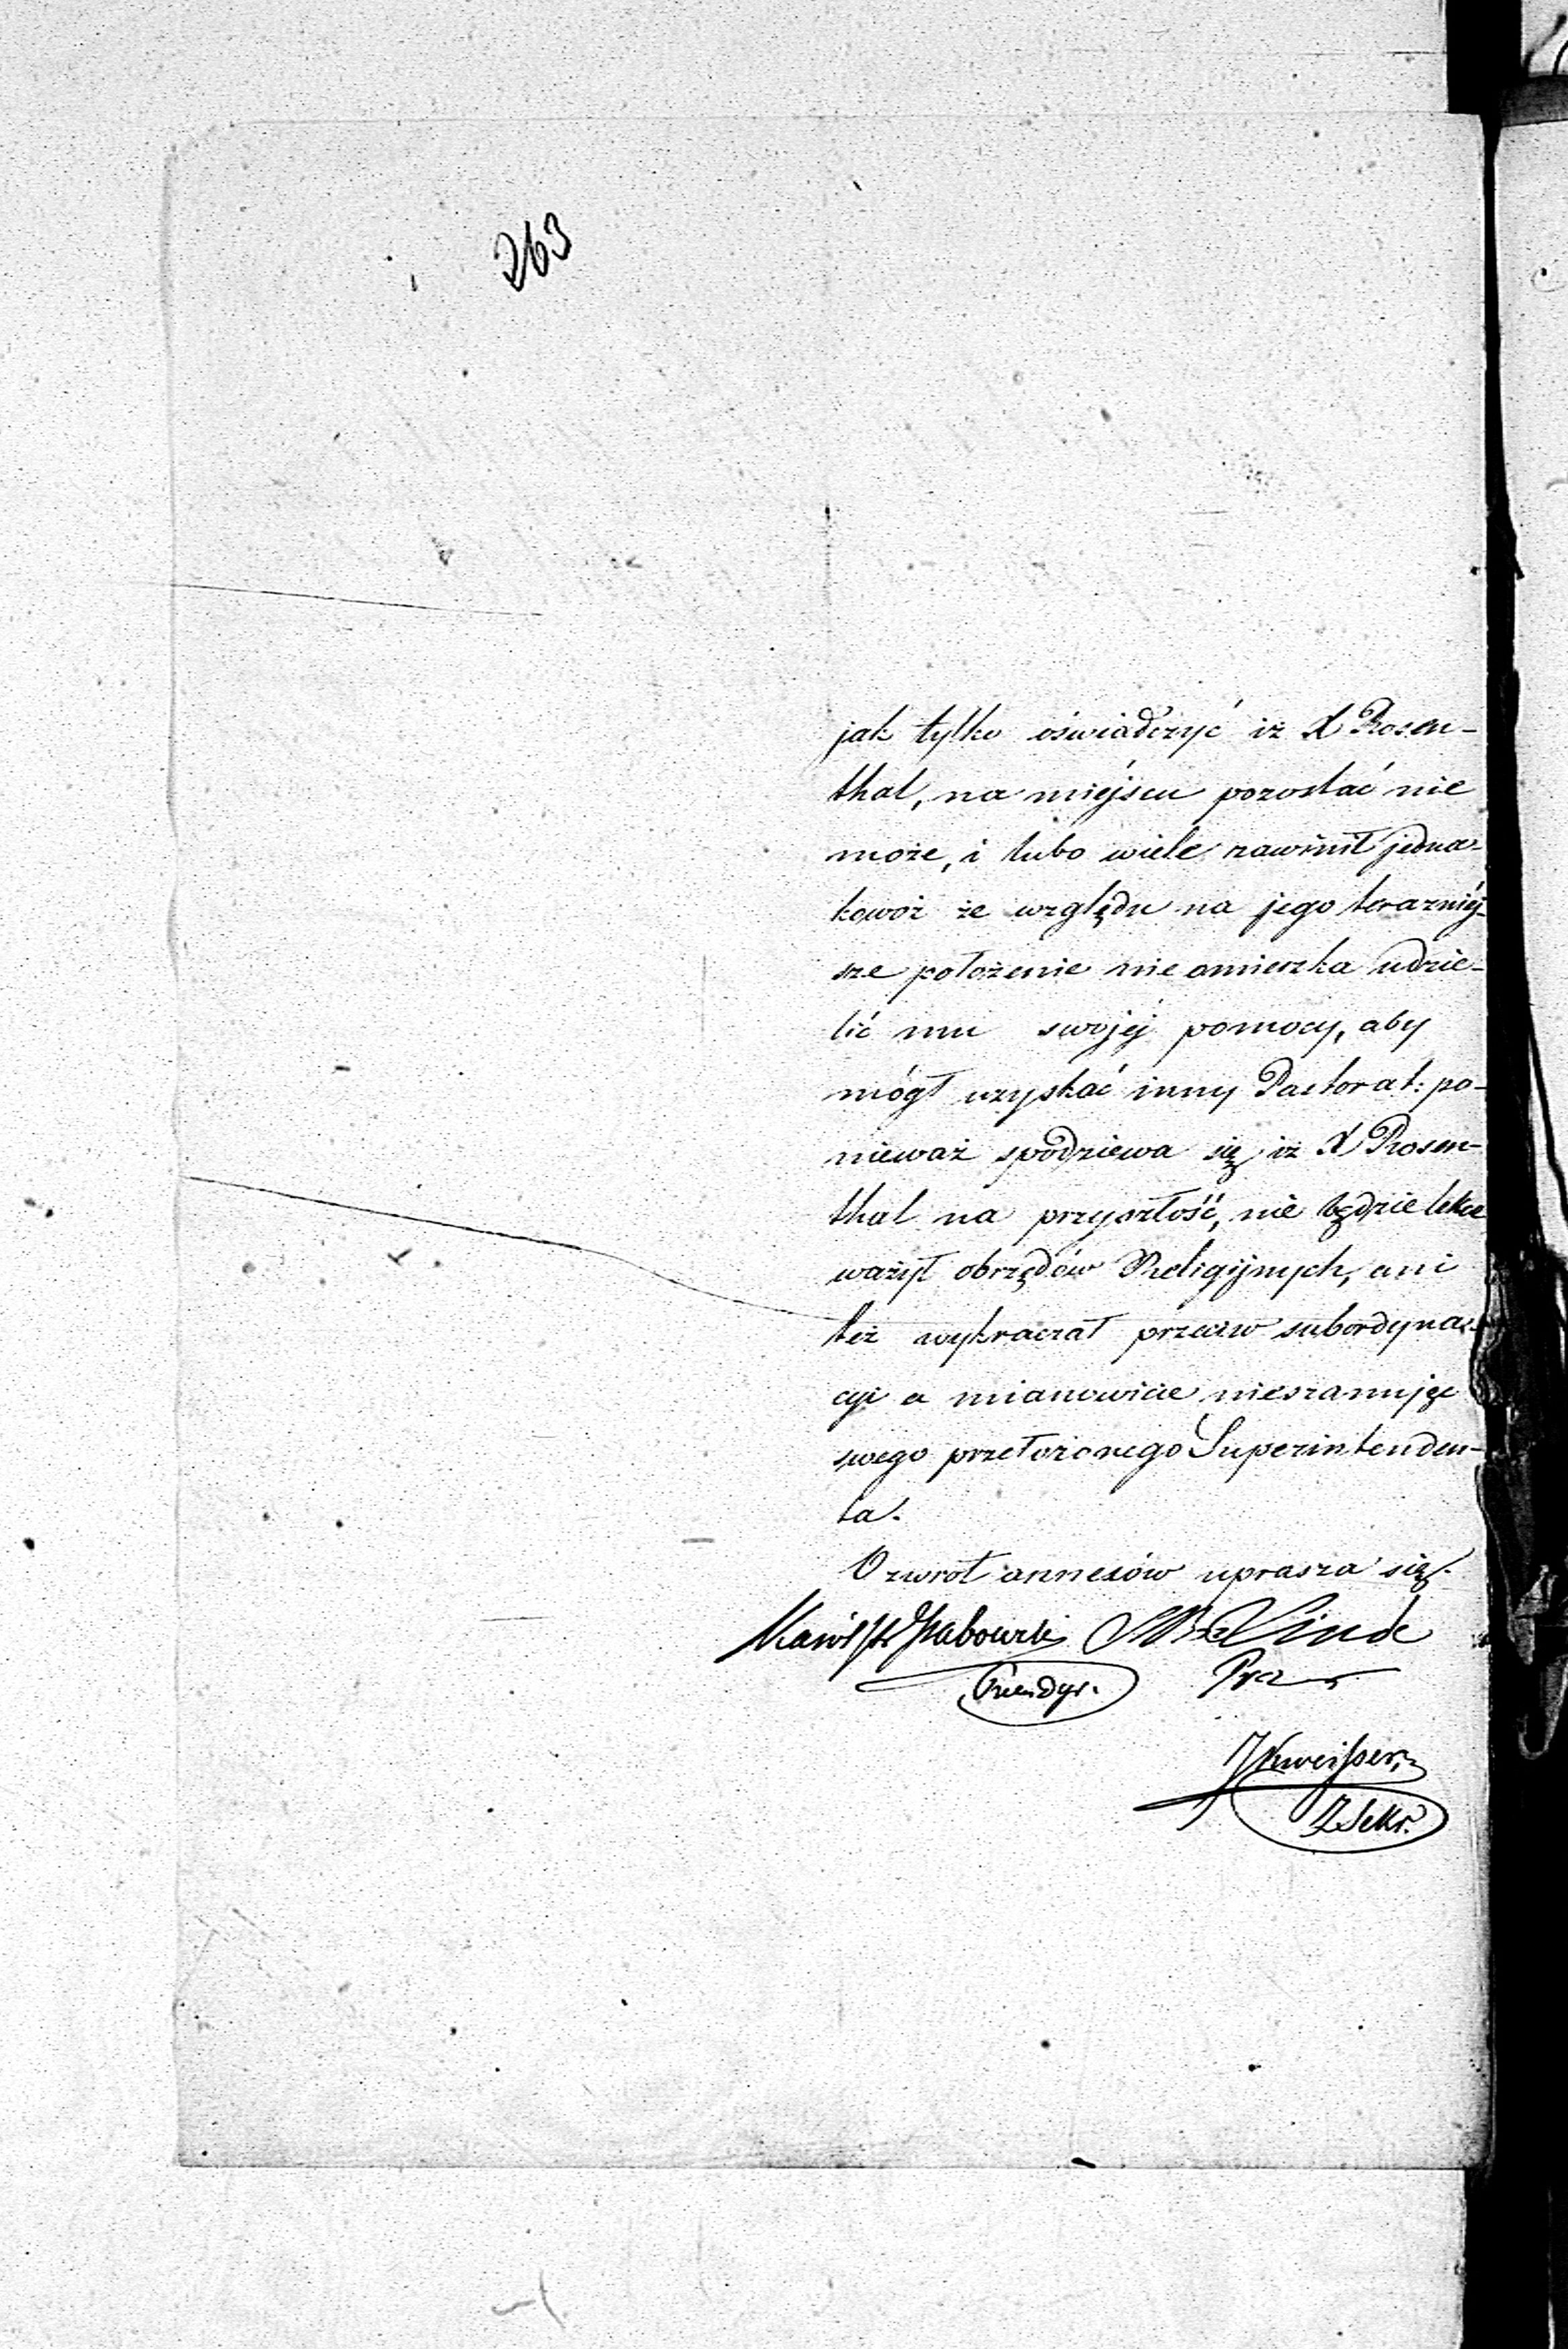 263
jak tylko oświadczyć iż X Rosen-
thal, na miejscu pozostać nie
może, i lubo wiele zawinił jedna-
kowoż ze względu na jego teraźniéj-
sze położenie nie omieszka udzie-
lić mu swojéj pomocy, aby
mógł uzyskać inny Pastorat: po-
nieważ spodziewa się iż X Rosen-
thal na przyszłość, nie będzie lekce
ważył obrzędów Religijnych, ani
też wykraczał przeciw subordyna-
cyi a mianowicie nieszanując
swego przełożonego Superintenden-
ta.
O zwrot annexów uprasza się.
Linde
Prez